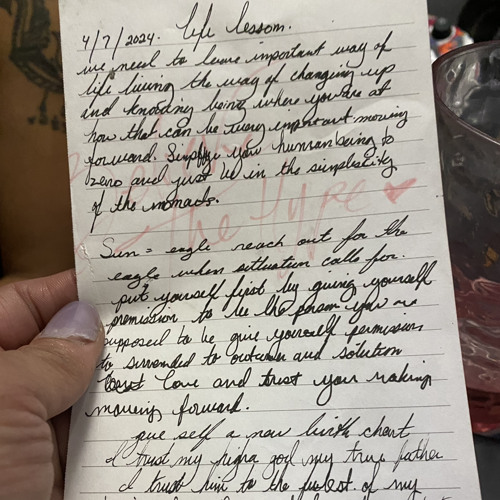 4/7/2024. Life lesson.
we need to leave important way of
life living the way of changing up
and knowing being where you are at
how that can be very important moving
forward. Simplify your human being to
zero and just be in the simplicity
of the monads.
the Hype
Sun = eagle reach out for the
eagle when situation calls for.
put yourself first by giving yourself
premission to be the person you are
supposed to be give yourself permission
to surrended to outcum and solution
love and trust your making
moving forward.
give self a new birth chart
I trust my god my true father
I trust him to the fullest of my